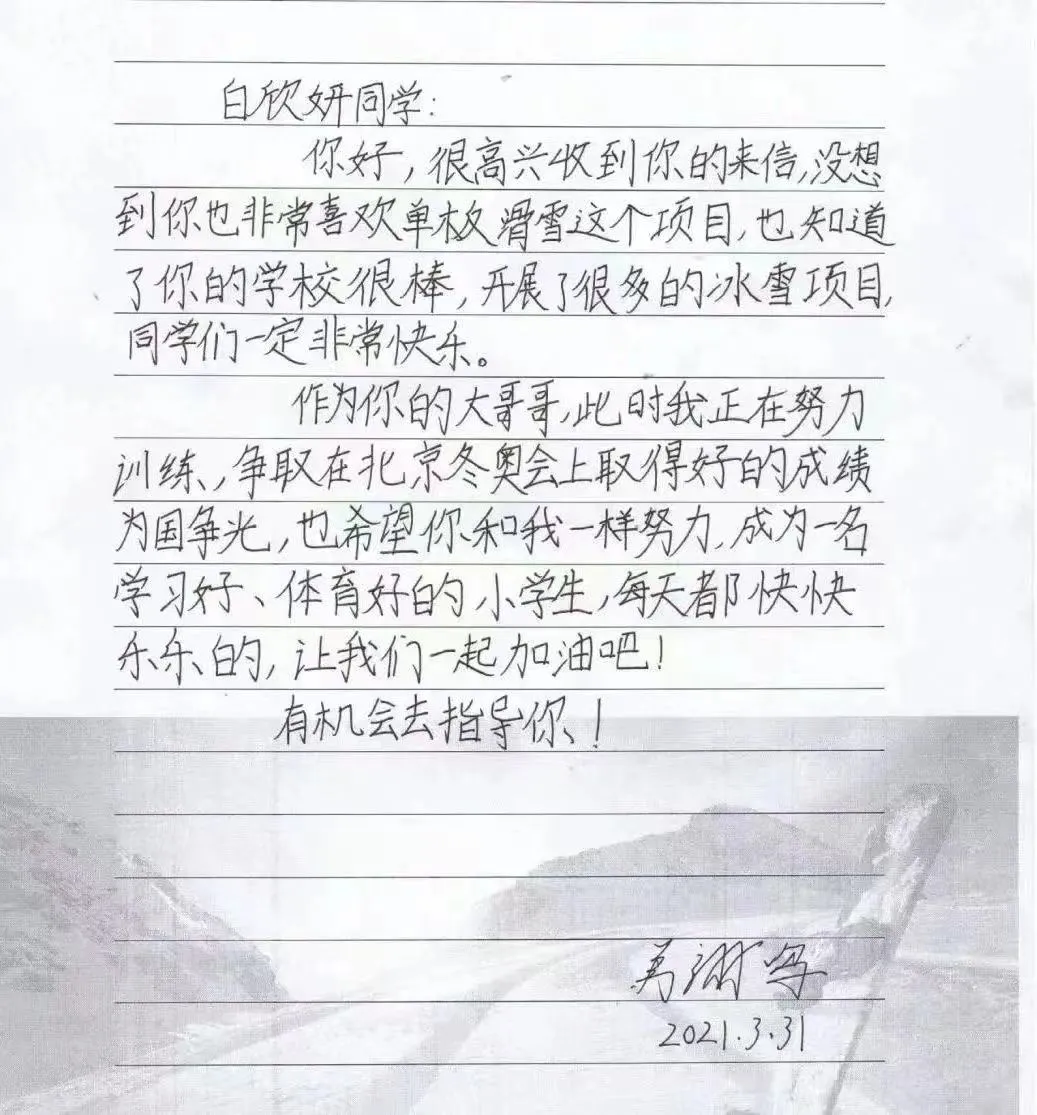 白欣妍同学:
你好,很高兴收到你的来信,没想
到你也非常喜欢单板滑雪这个项目,也知道
了你的学校很棒,开展了很多的冰雪项目,
同学们一定非常快乐。
作为你的大哥哥,此时我正在努力
训练,争取在北京冬奥会上取得好的成绩
为国争光,也希望你和我一样努力,成为一名
学习好、体育好的小学生,每天都快快
乐乐的,让我们一起加油吧!
有机会去指导你!
2021.3.31